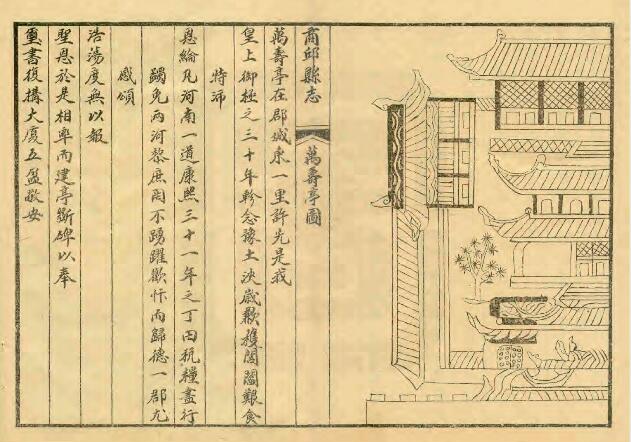 商邱縣志
萬壽亭圖
萬壽亭在郡城東一里許先是我
皇上御極之三十年軫念豫土決歲歉穫閭閻艱食
特沛
恩綸凡河南一道康熙三十一年之丁田秔糧盡行
蠲免兩河黎庶罔不踴躍歡忭而歸德一郡尤
感頌
浩蕩度無以報
聖恩於是相率而建亭斲碑以奉
璽書復搆大廈五盈敬安